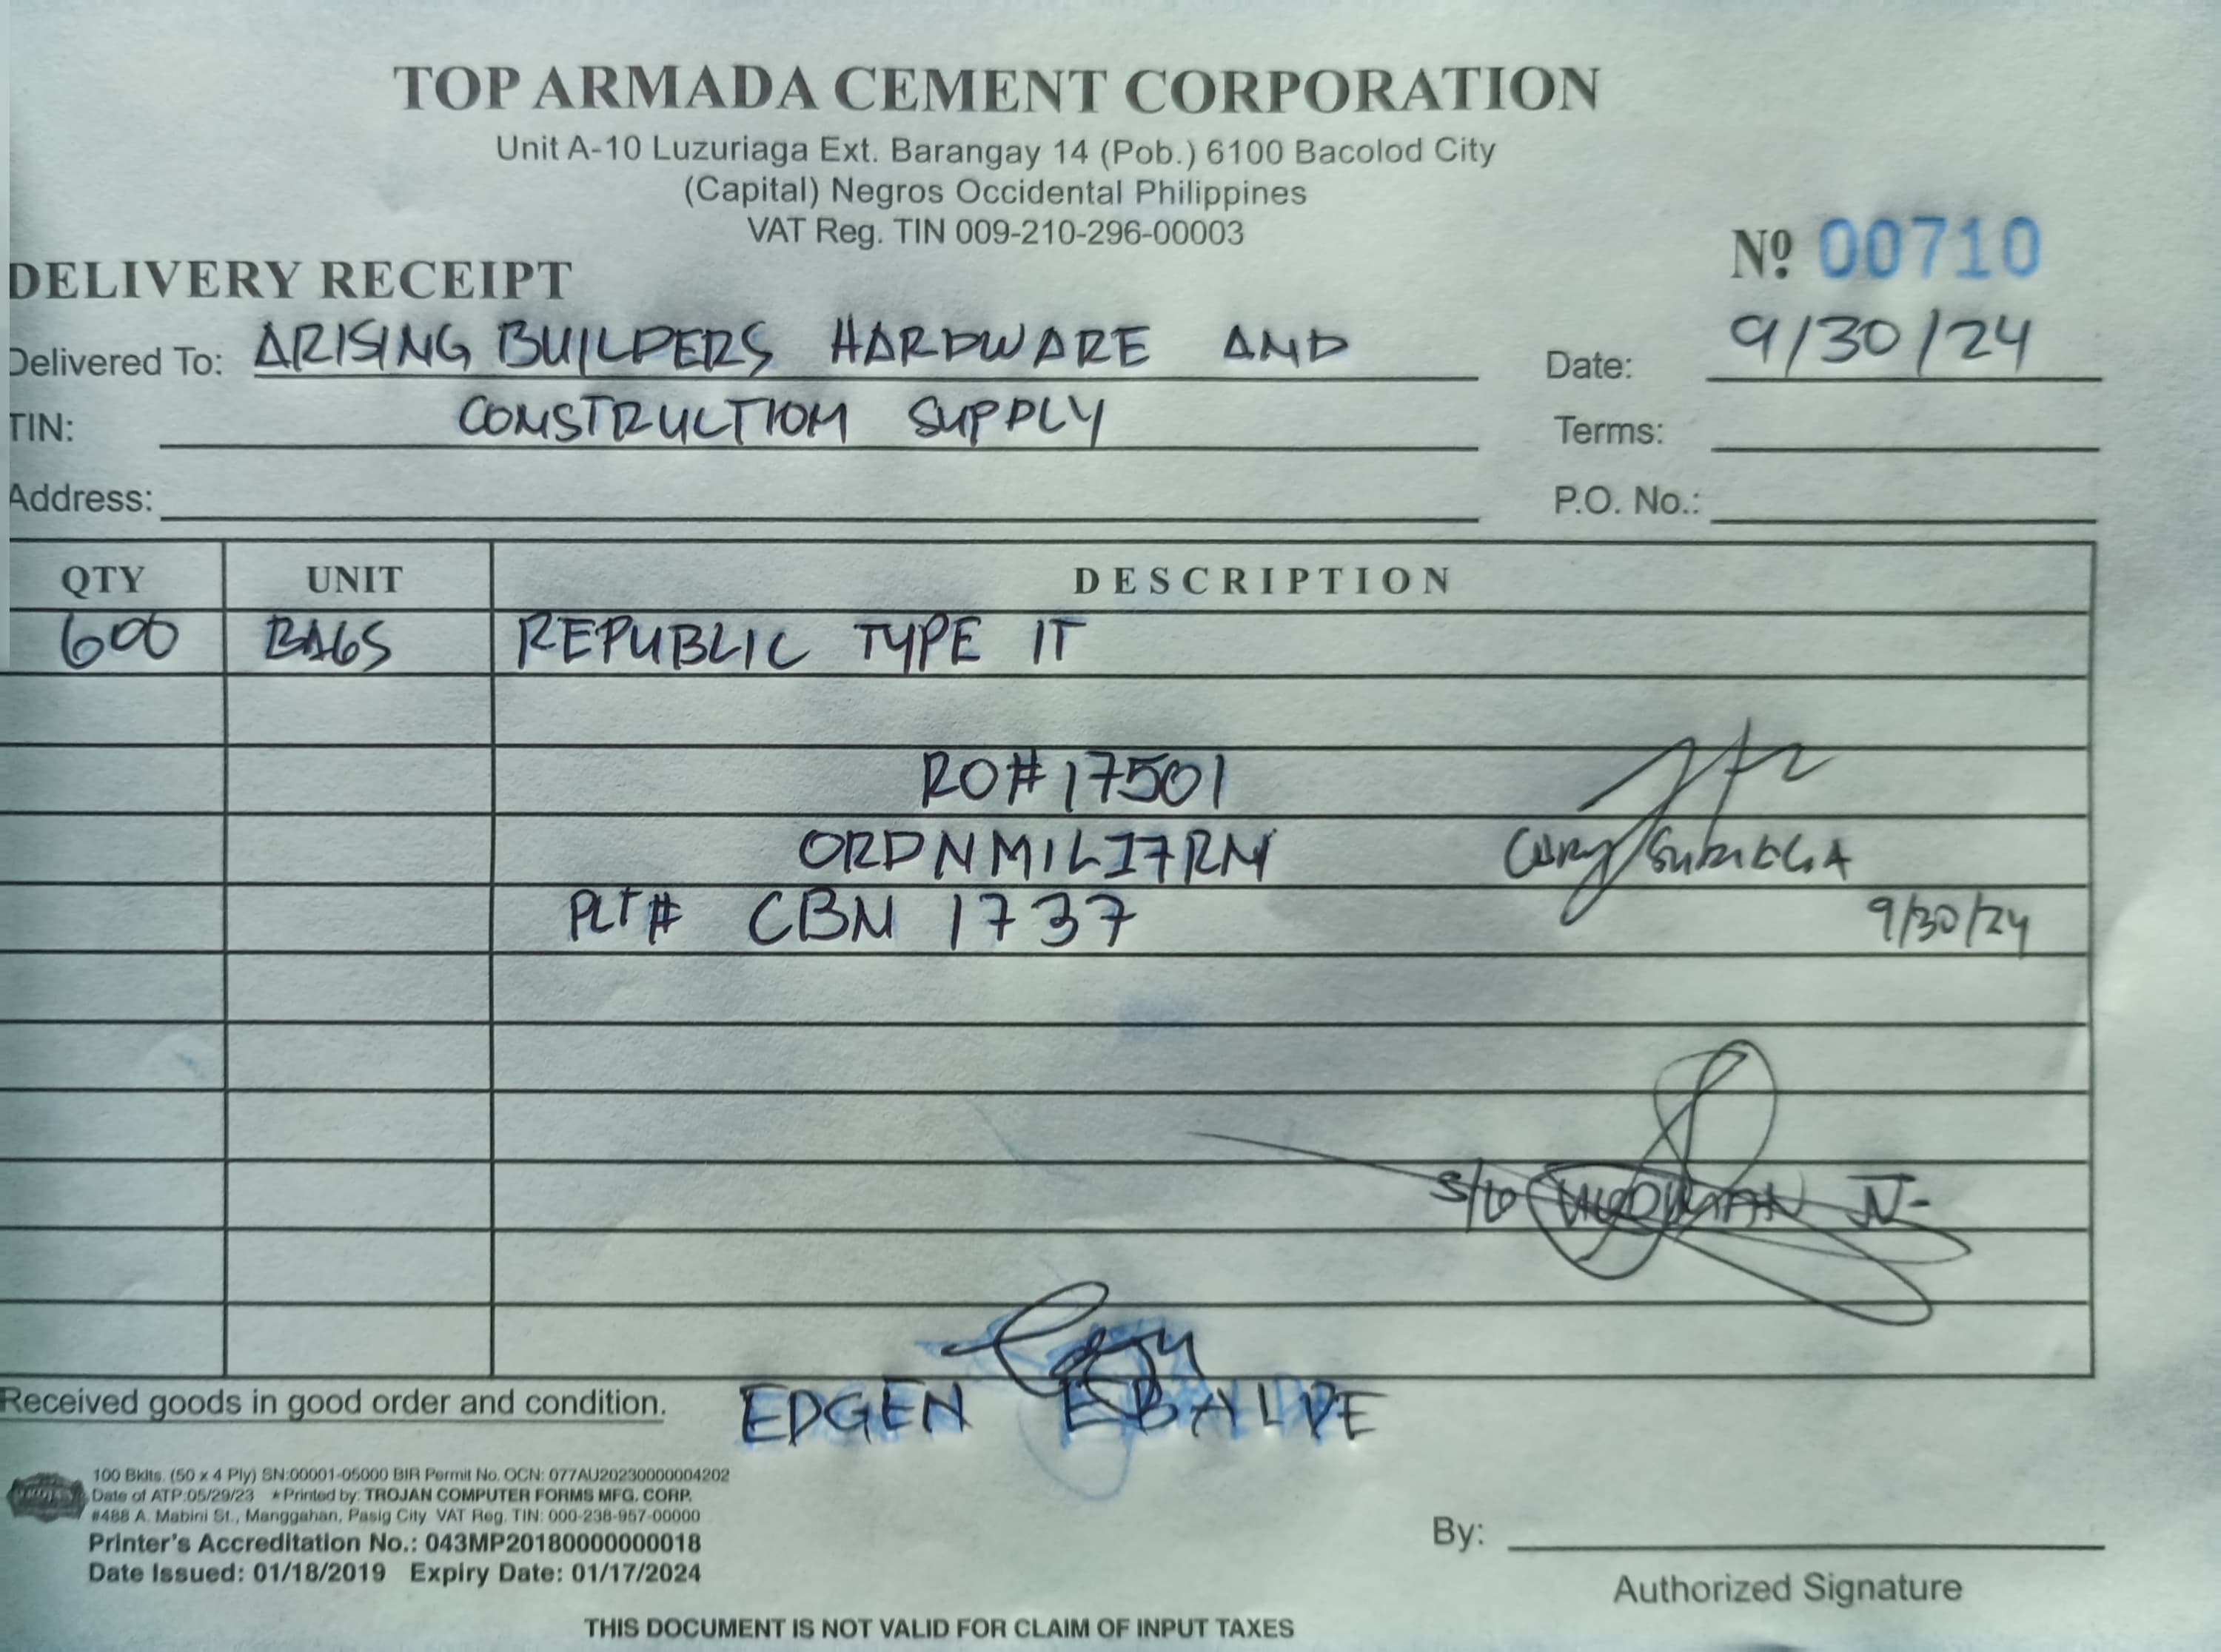 TOP ARMADA CEMENT CORPORATION
Unit A-10 Luzuriaga Ext. Barangay 14 (Pob.) 6100 Bacolod City
(Capital) Negros Occidental Philippines
VAT Reg. TIN 009-210-296-00003
Nº 00710
DELIVERY RECEIPT
Delivered To: ARISING BUILDERS HARDWARE AND
Date: 9/30/24
TIN: CONSTRUCTION SUPPLY
Terms:
Address:
P.O. No.:
QTY UNIT DESCRIPTION
600 BAGS REPUBLIC TYPE 1T
RO# 17501
ORDNMILI7RM
PLT# CBN 1737
9/30/24
S/G
EDGEN EBALDE
Received goods in good order and condition.
100 Bklts. (50 x 4 Ply) SN:00001-05000 BIR Permit No. OCN: 077AU20230000004202
Date of ATP:05/29/23 *Printed by: TROJAN COMPUTER FORMS MFG. CORP.
#488 A. Mabini St., Manggahan, Pasig City VAT Reg. TIN: 000-238-957-00000
Printer's Accreditation No.: 043MP20180000000018
Date Issued: 01/18/2019 Expiry Date: 01/17/2024
By:
Authorized Signature
THIS DOCUMENT IS NOT VALID FOR CLAIM OF INPUT TAXES